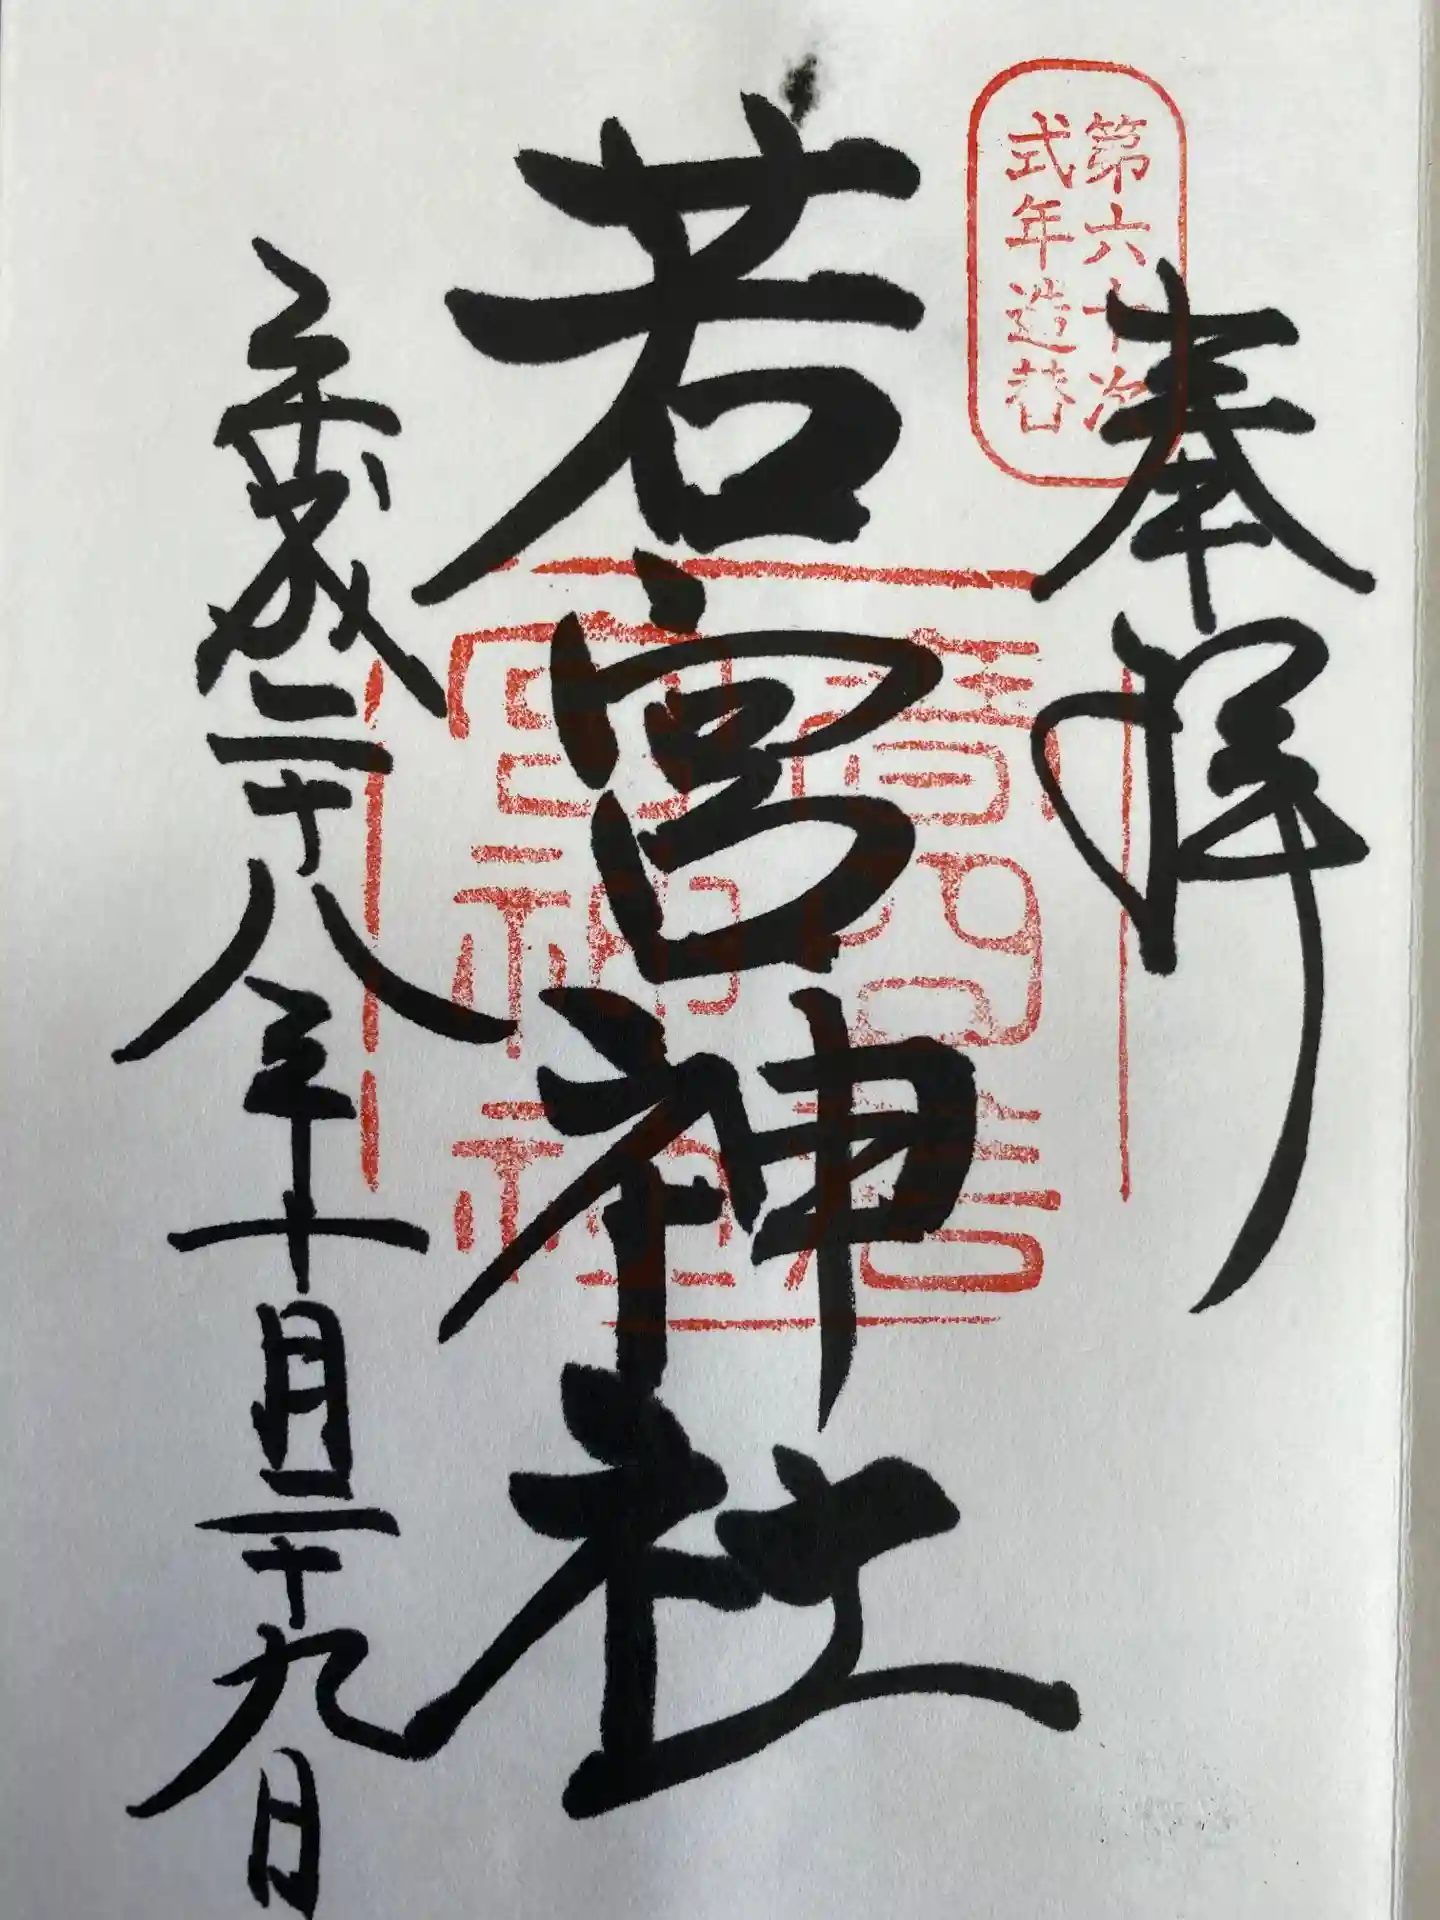 第六十次
式年造替
奉拝
若宮神社
平成二十八年十月二十九日
春日若宮神社